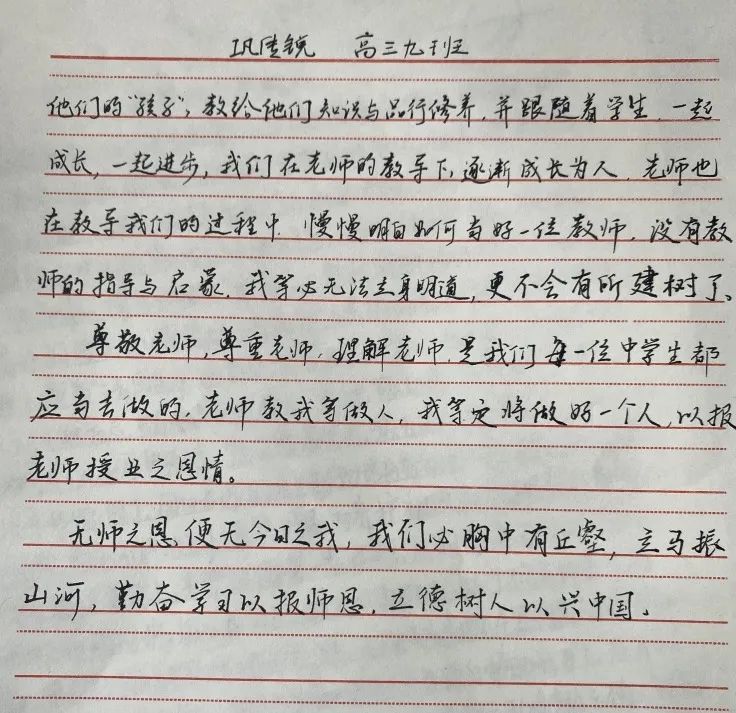 巩传锐 高三九班
他们的“孩子”,教给他们知识与品行修养,并跟随着学生,一起
成长,一起进步,我们在老师的教导下,逐渐成长为人,老师也
在教导我们的过程中,慢慢明白如何当好一位教师,没有教
师的指导与启蒙,我等必无法立身明道,更不会有所建树了。
尊敬老师,尊重老师,理解老师,是我们每一位中学生都
应当去做的,老师教我等做人,我等定将做好一个人,以报
老师授业之恩情。
无师之恩,便无今日之我,我们必胸中有丘壑,立马振
山河,勤奋学习以报师恩,立德树人以兴中国。